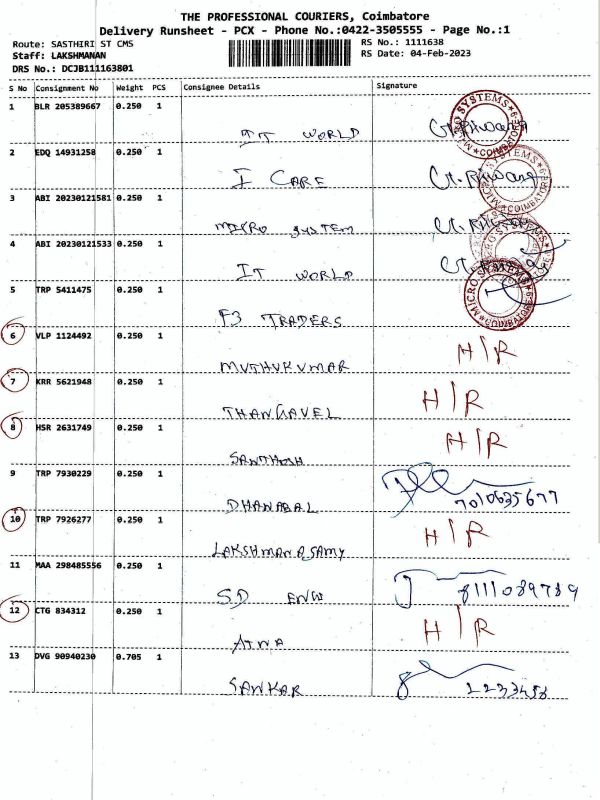 THE PROFESSIONAL COURIERS, Coimbatore
Delivery Runsheet - PCX - Phone No.:0422-3505555 - Page No.:1
Route: SASTHIRI ST CMS RS No.: 1111638
Staff: LAKSHMANAN RS Date: 04-Feb-2023
DRS No.: DCJB111163801
S No Consignment No Weight PCS Consignee Details Signature
1 BLR 205389667 0.250 1
IT WORLD
MICRO SYSTEMS COIMBATORE
2 EDQ 14931258 0.250 1
I CARE
3 ABI 20230121581 0.250 1
MICRO SYSTEM
4 ABI 20230121533 0.250 1
IT WORLD
5 TRP 5411475 0.250 1
MICRO SYSTEMS COIMBATORE
F3 TRADERS
6 VLP 1124492 0.250 1
MUTHUKUMAR H/R
7 KRR 5621948 0.250 1
THANGAVEL H/R
8 HSR 2631749 0.250 1
SANTHOSH H/R
9 TRP 7930229 0.250 1
DHANABAL 7010635677
10 TRP 7926277 0.250 1
LAKSHMANASAMY H/R
11 MAA 298485556 0.250 1
SD ENGG 8111089789
12 CTG 834312 0.250 1
H/R
13 DVG 90940230 0.705 1
SANKAR